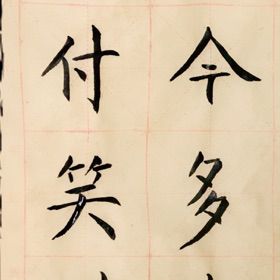 今多
付笑